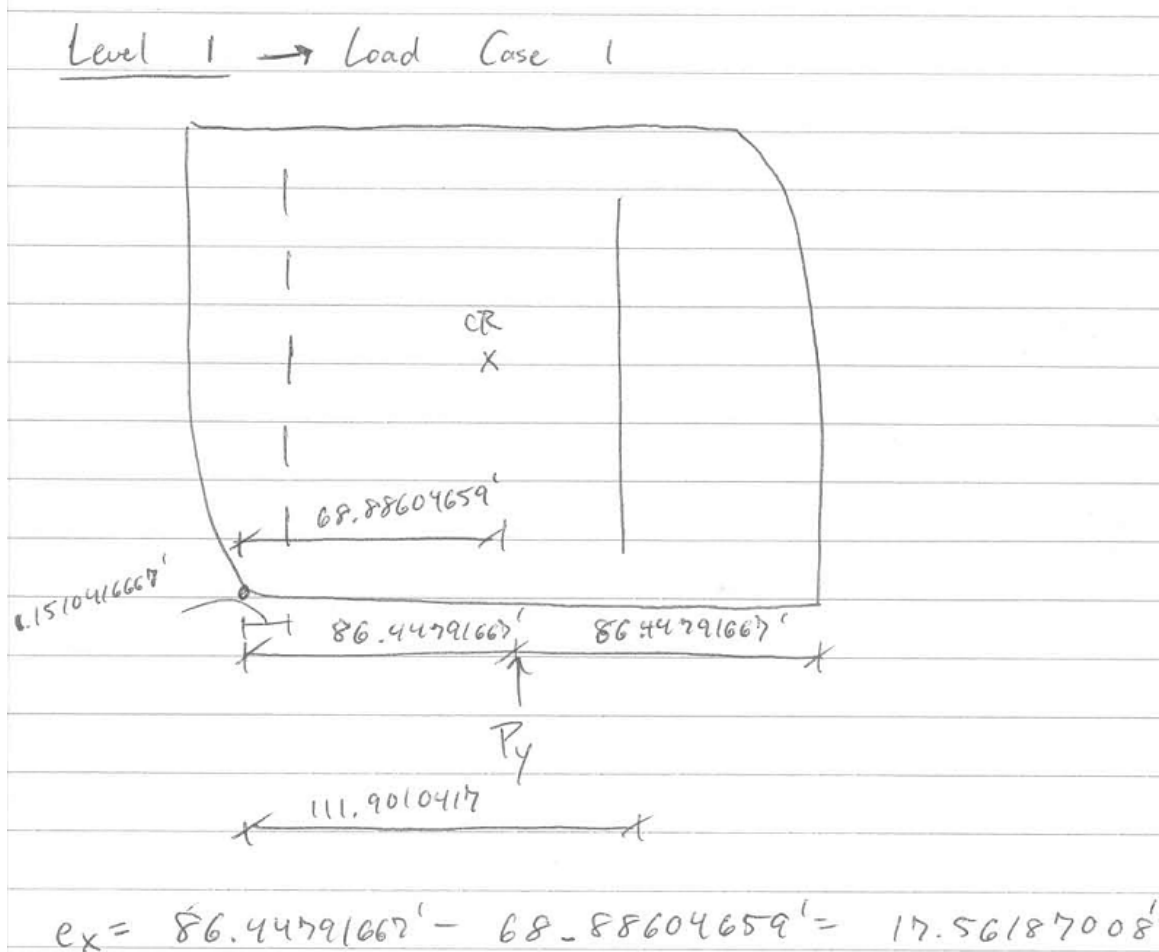 Level 1 → Load Case 1
CR
X
68.88604659'
86.44791667' 86.44791667'
Py
111.9010417
ex = 86.44791667' - 68.88604659' = 17.56187008'